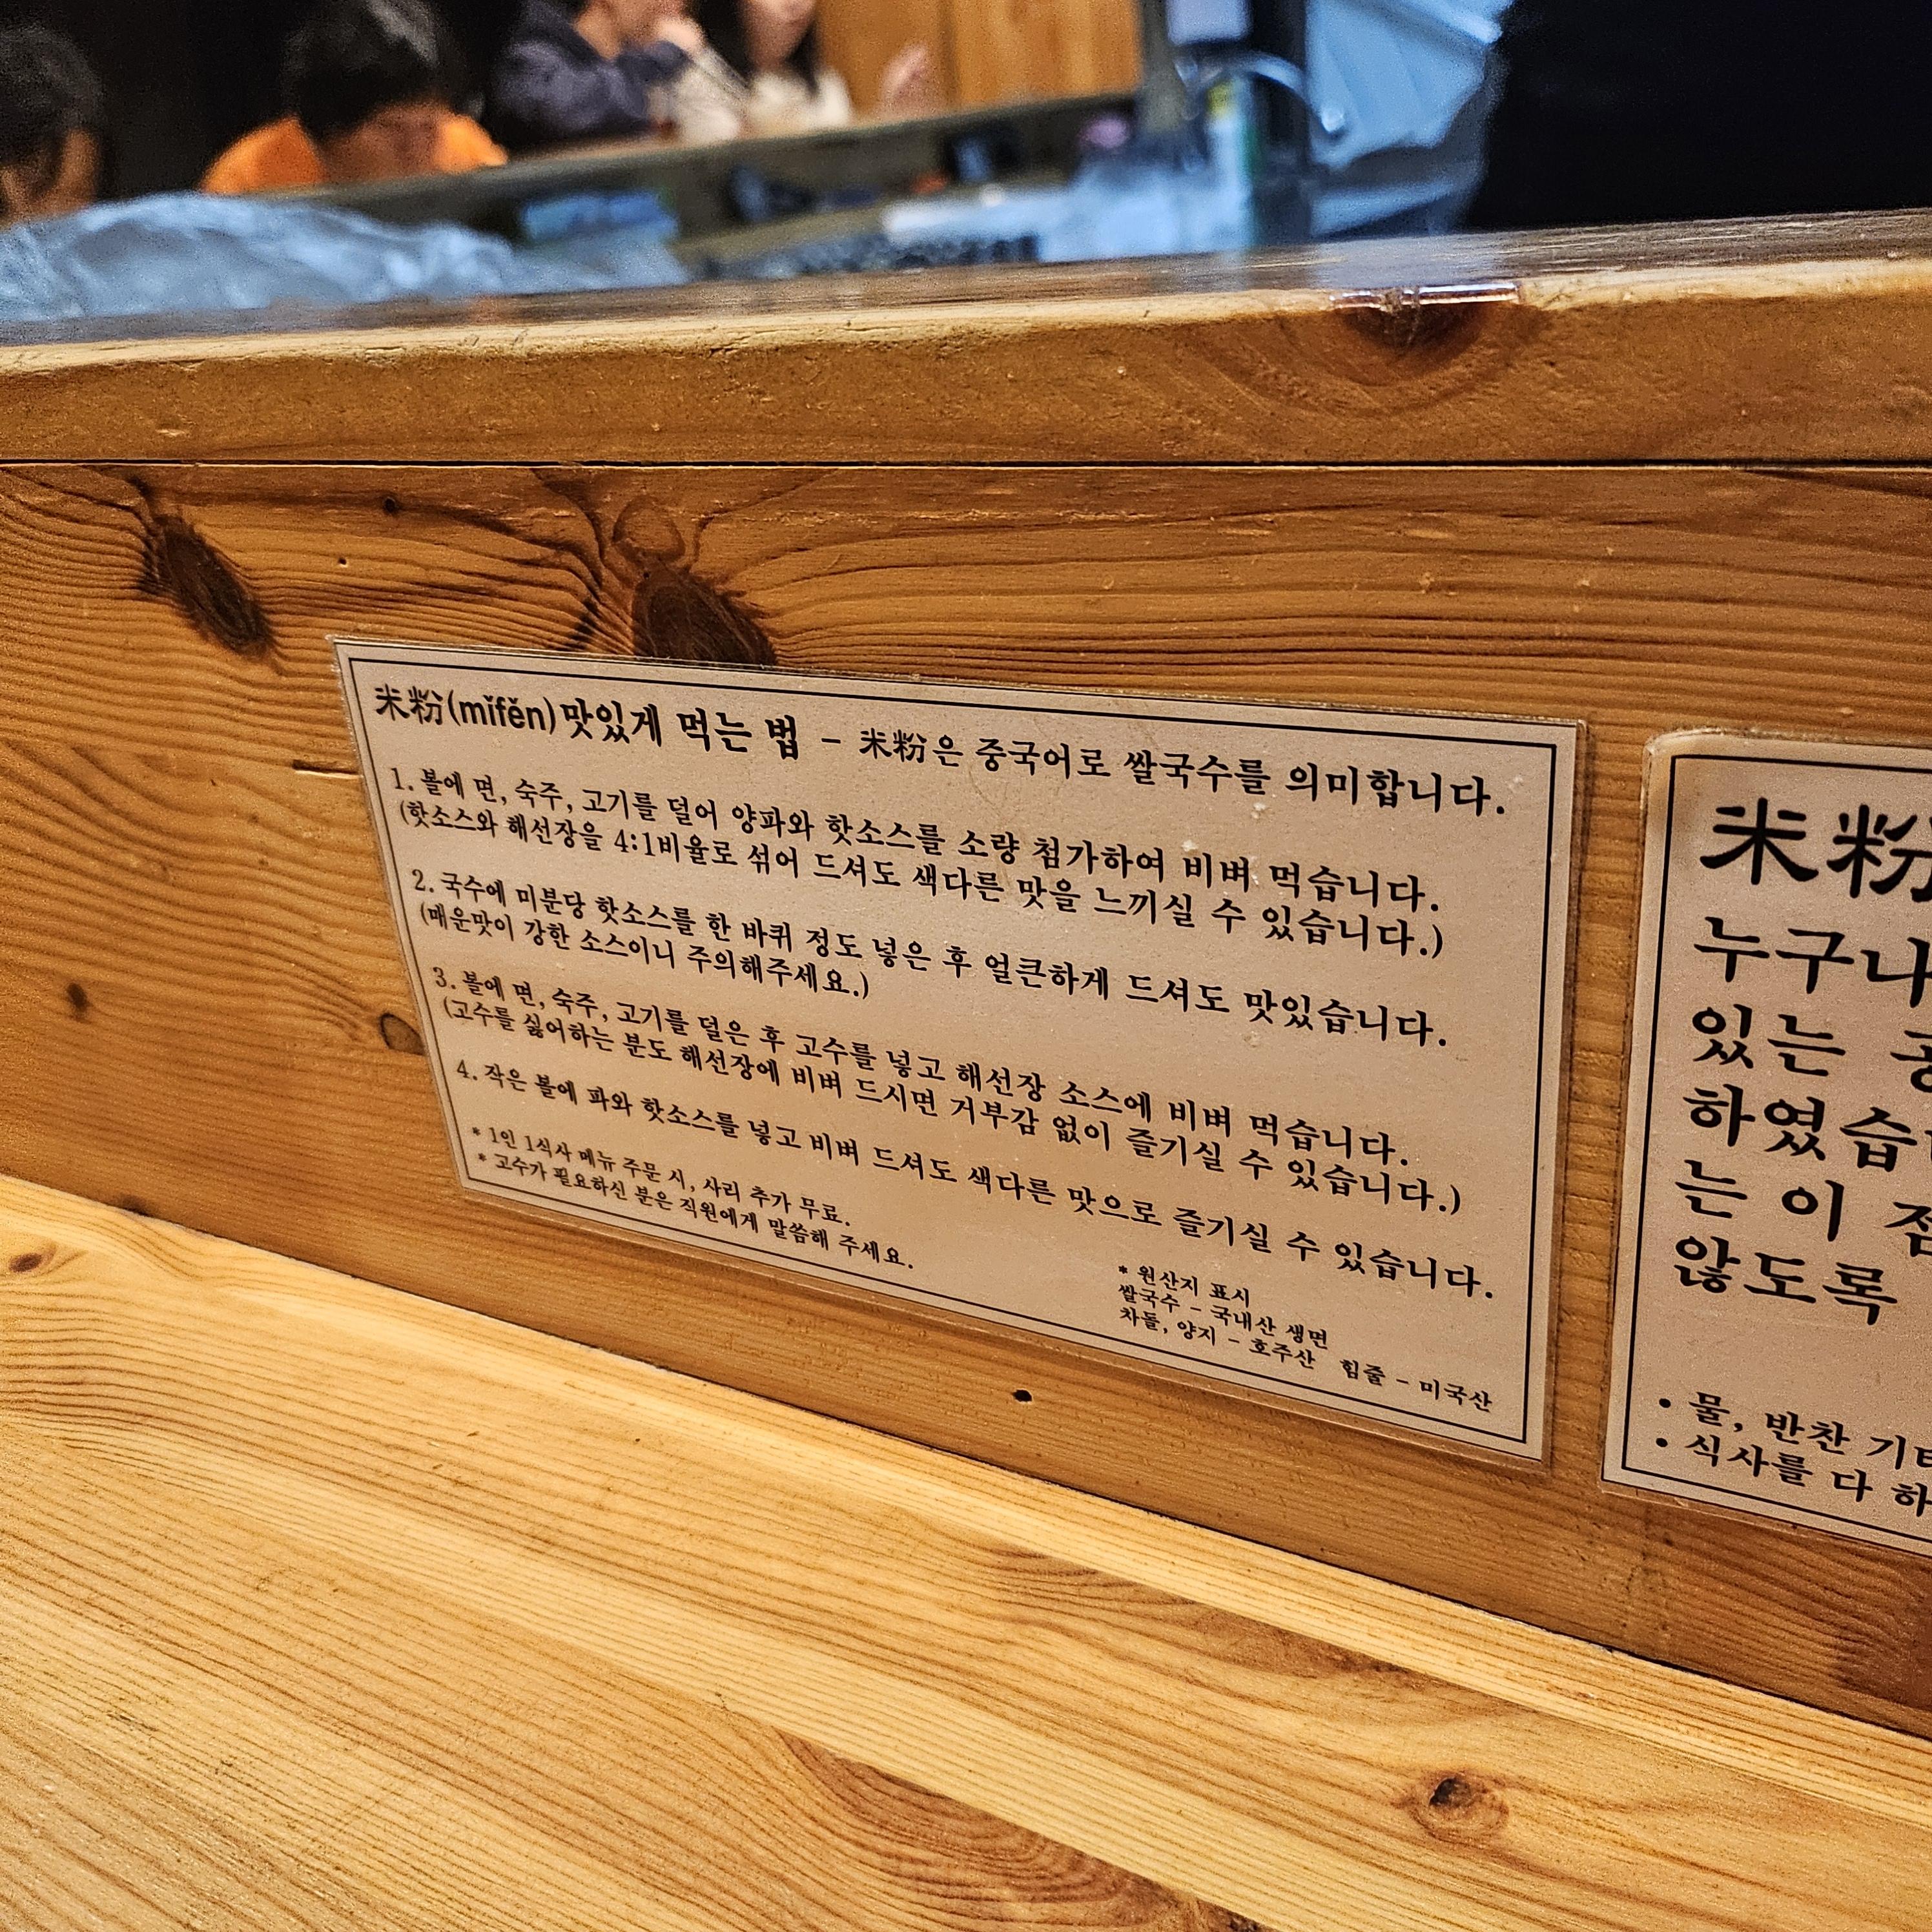 米粉(mǐfěn)맛있게 먹는 법 - 米粉은 중국어로 쌀국수를 의미합니다.
1. 볼에 면, 숙주, 고기를 덜어 양파와 핫소스를 소량 첨가하여 비벼 먹습니다.
(핫소스와 해선장을 4:1비율로 섞어 드셔도 색다른 맛을 느끼실 수 있습니다.)
2. 국수에 미분당 핫소스를 한 바퀴 정도 넣은 후 얼큰하게 드셔도 맛있습니다.
(매운맛이 강한 소스이니 주의해주세요.)
3. 볼에 면, 숙주, 고기를 덜은 후 고수를 넣고 해선장 소스에 비벼 먹습니다.
(고수를 싫어하는 분도 해선장에 비벼 드시면 거부감 없이 즐기실 수 있습니다.)
4. 작은 볼에 파와 핫소스를 넣고 비벼 드셔도 색다른 맛으로 즐기실 수 있습니다.
* 1인 1식사 메뉴 주문 시, 사리 추가 무료.
* 고수가 필요하신 분은 직원에게 말씀해 주세요.
* 원산지 표시
쌀국수 - 국내산 생면
차돌, 양지 - 호주산 힘줄 - 미국산
米粉
누구나
있는
하였습
는 이
않도록
• 물, 반찬
• 식사를 다